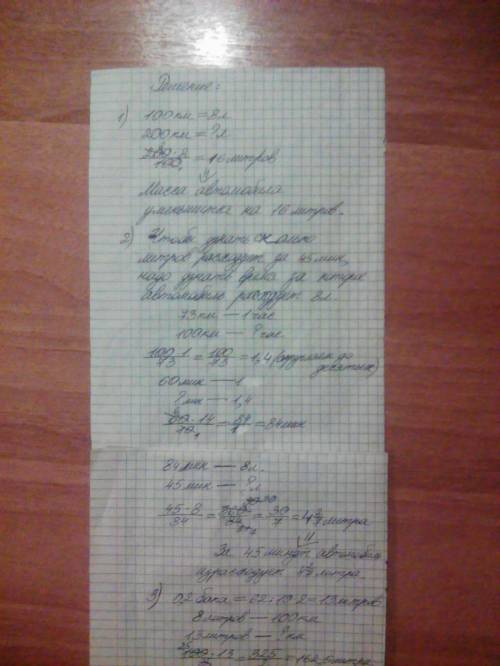 Решение:
1) 100км = 8л
200км = ?л
200·8/100 = 16 литров
Масса автомобиля
уменьшится на 16 литров.
2) Чтобы узнать сколько
литров расходует за 45 мин,
надо узнать время за которое
автомобиль расходует 8л.
73км — 1час
100км — ?час
100·1/73 = 100/73 = 1,4 (округлили до
десятых)
60мин — 1
?мин — 1,4
60·14/10 = 84/1 = 84мин
84мин — 8л.
45мин — ?л
45·8/84 = 30/7 = 4 2/7 литра
За 45 минут автомобиль
израсходует 4 2/7 литра.
3) 0,2 бака =
= 13 литров.
8 литров — 100км
13 литров — ?км
100·13 = 325